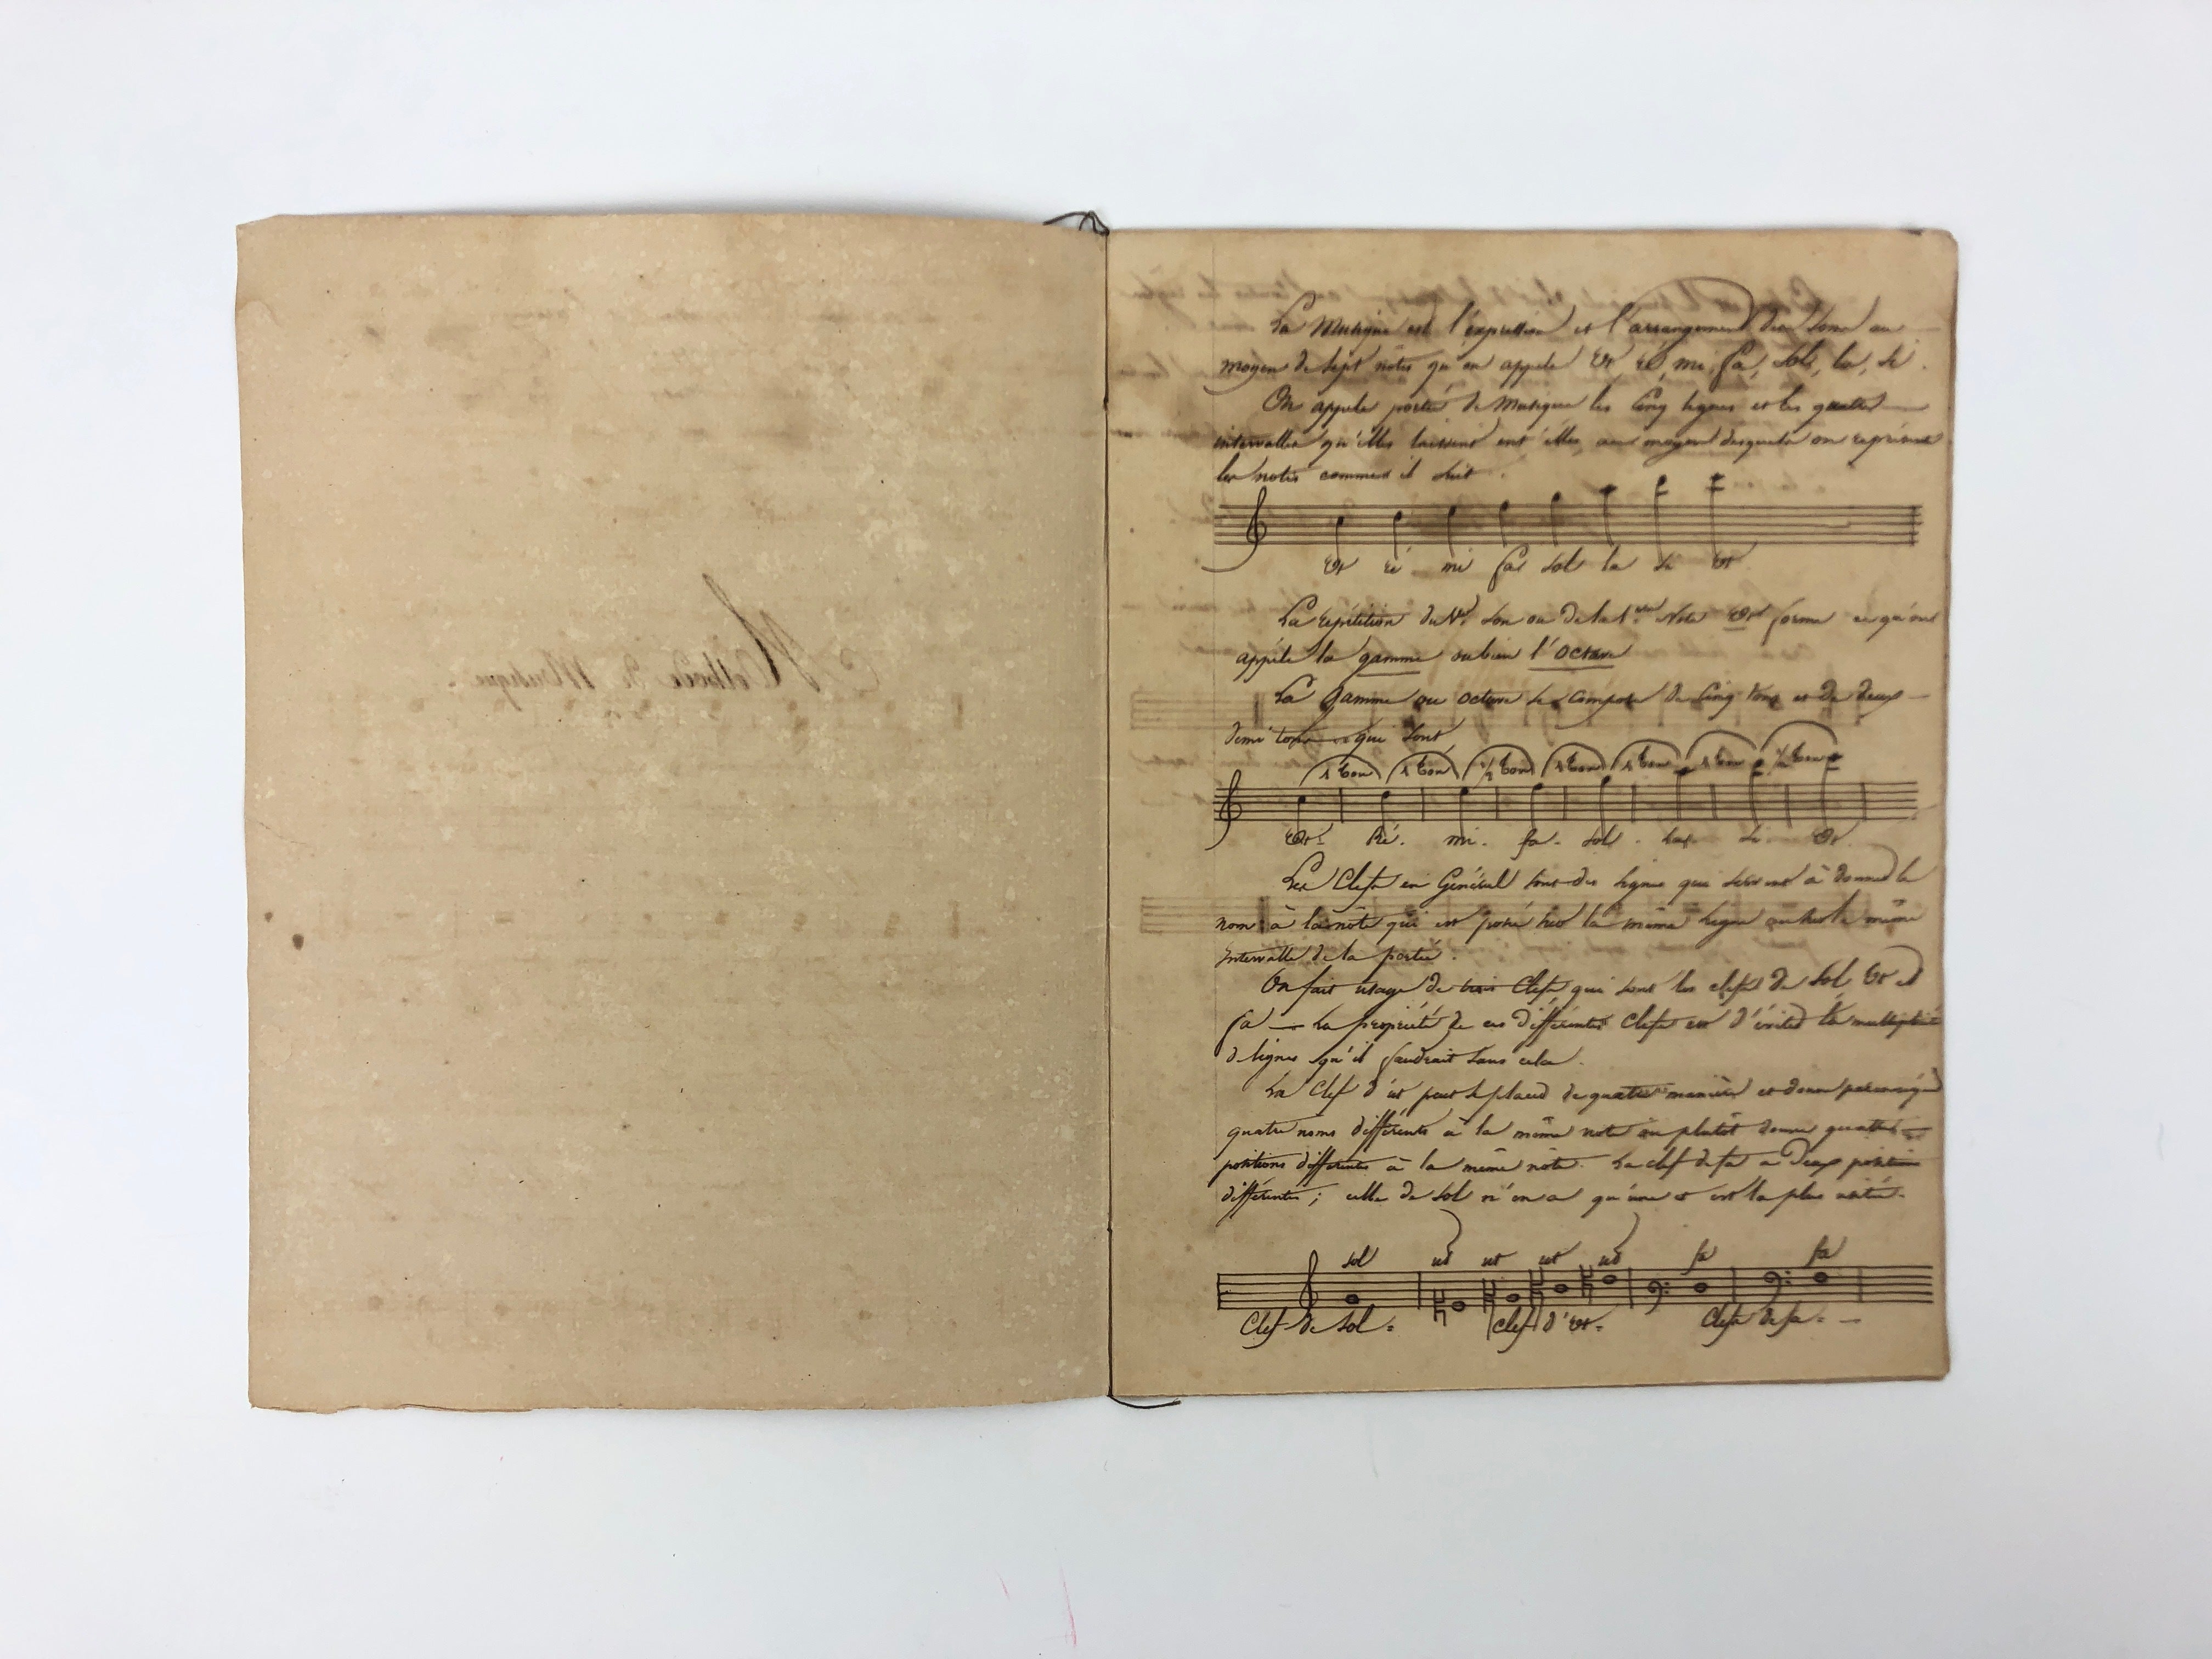 Méthode de Musique.
La Musique est l'expression et l'arrangement des sons au
moyen de sept nôtes qu'on appele Ut, ré, mi, fa, sol, la, si.
On appele porteé de Musique les cinq lignes et les quatre
intervalles qu'elles laissent ent'elles, au moyens desquels on représente
les notes comme il suit.
Ut ré mi fa sol la si Ut
La repétition du 1er son ou de la 1ere Note Ut forme ce qu'on
appéle la gamme oubien l'octave
La gamme ou octave se compose de cinq tons et de deux
demi tons qui sont
1 ton 1 ton 1/2 ton 1 ton 1 ton 1 ton 1/2 ton
Ut. Ré. mi. fa. sol. la. si. Ut.
Les Clefs en Général sont des signes qui servent à donner le
nom à la nôte qui est posée sur la même ligne ou sur le même
intervalle de la porteé.
On fait usage de trois Clefs, qui sont les clefs de Sol, Ut et
fa — La propriété de ces différentes Clefs est d'éviter la multiplicité
d lignes qu'il faudrait sans cela.
La Clef d'ut peut se placer de quatre manière et donne
quatre noms différents à la même note ou plutôt donne quatre
positions différentes à la même nôte. La clef de fa a Deux positions
différentes; celle de Sol n'en a qu'une et est la plus usitée.
sol ut ut ut ut fa fa
Clef de Sol = clef d'Ut = Clefs de fa =